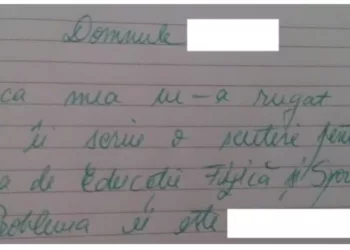 Domnule
ca mea m-a rugat
îi scriu o scutire pen
a de Educație Fizică și Spor
Problema ei este